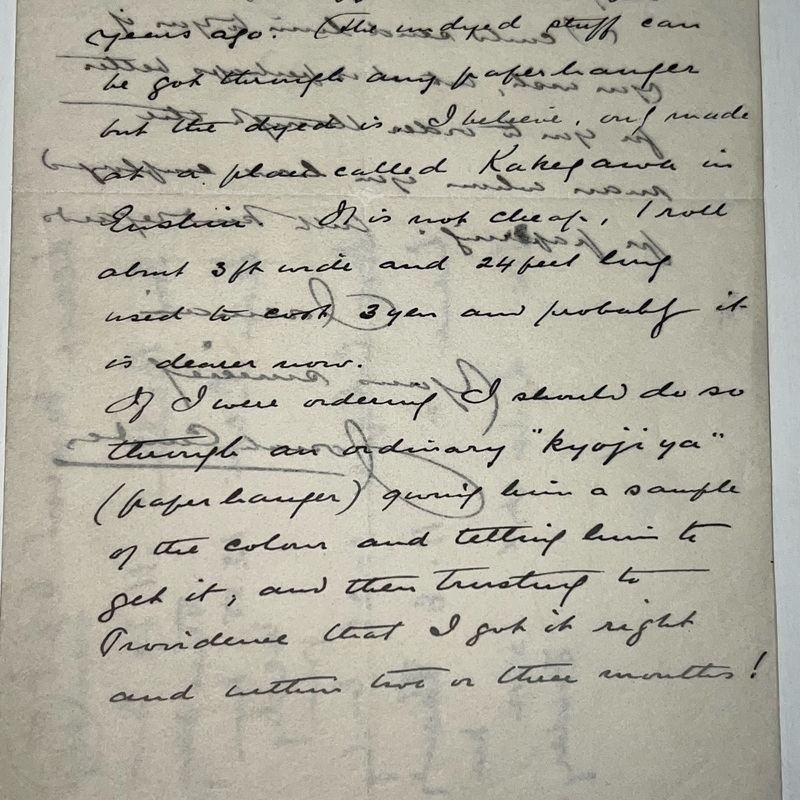 years ago. (The undyed stuff can
be got through any paperhanger
but the dyed is, I believe, only made
at a place called Kakegawa in
Enshiu. It is not cheap, 1 roll
about 3 ft wide and 24 feet long
used to cost 3 yen and probably it
is dearer now.
If I were ordering I should do so
through an ordinary "kyoji ya"
(paperhanger) giving him a sample
of the colour and telling him to
get it, and then trusting to
Providence that I got it right
and within two or three months!